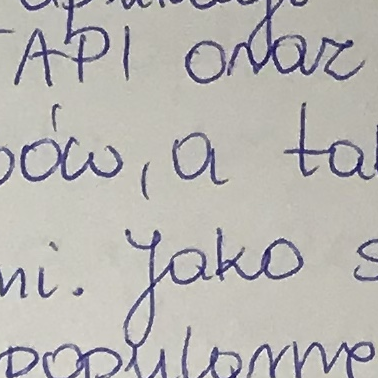 API oraz
ów, a ta
ni. Jako s
popularne